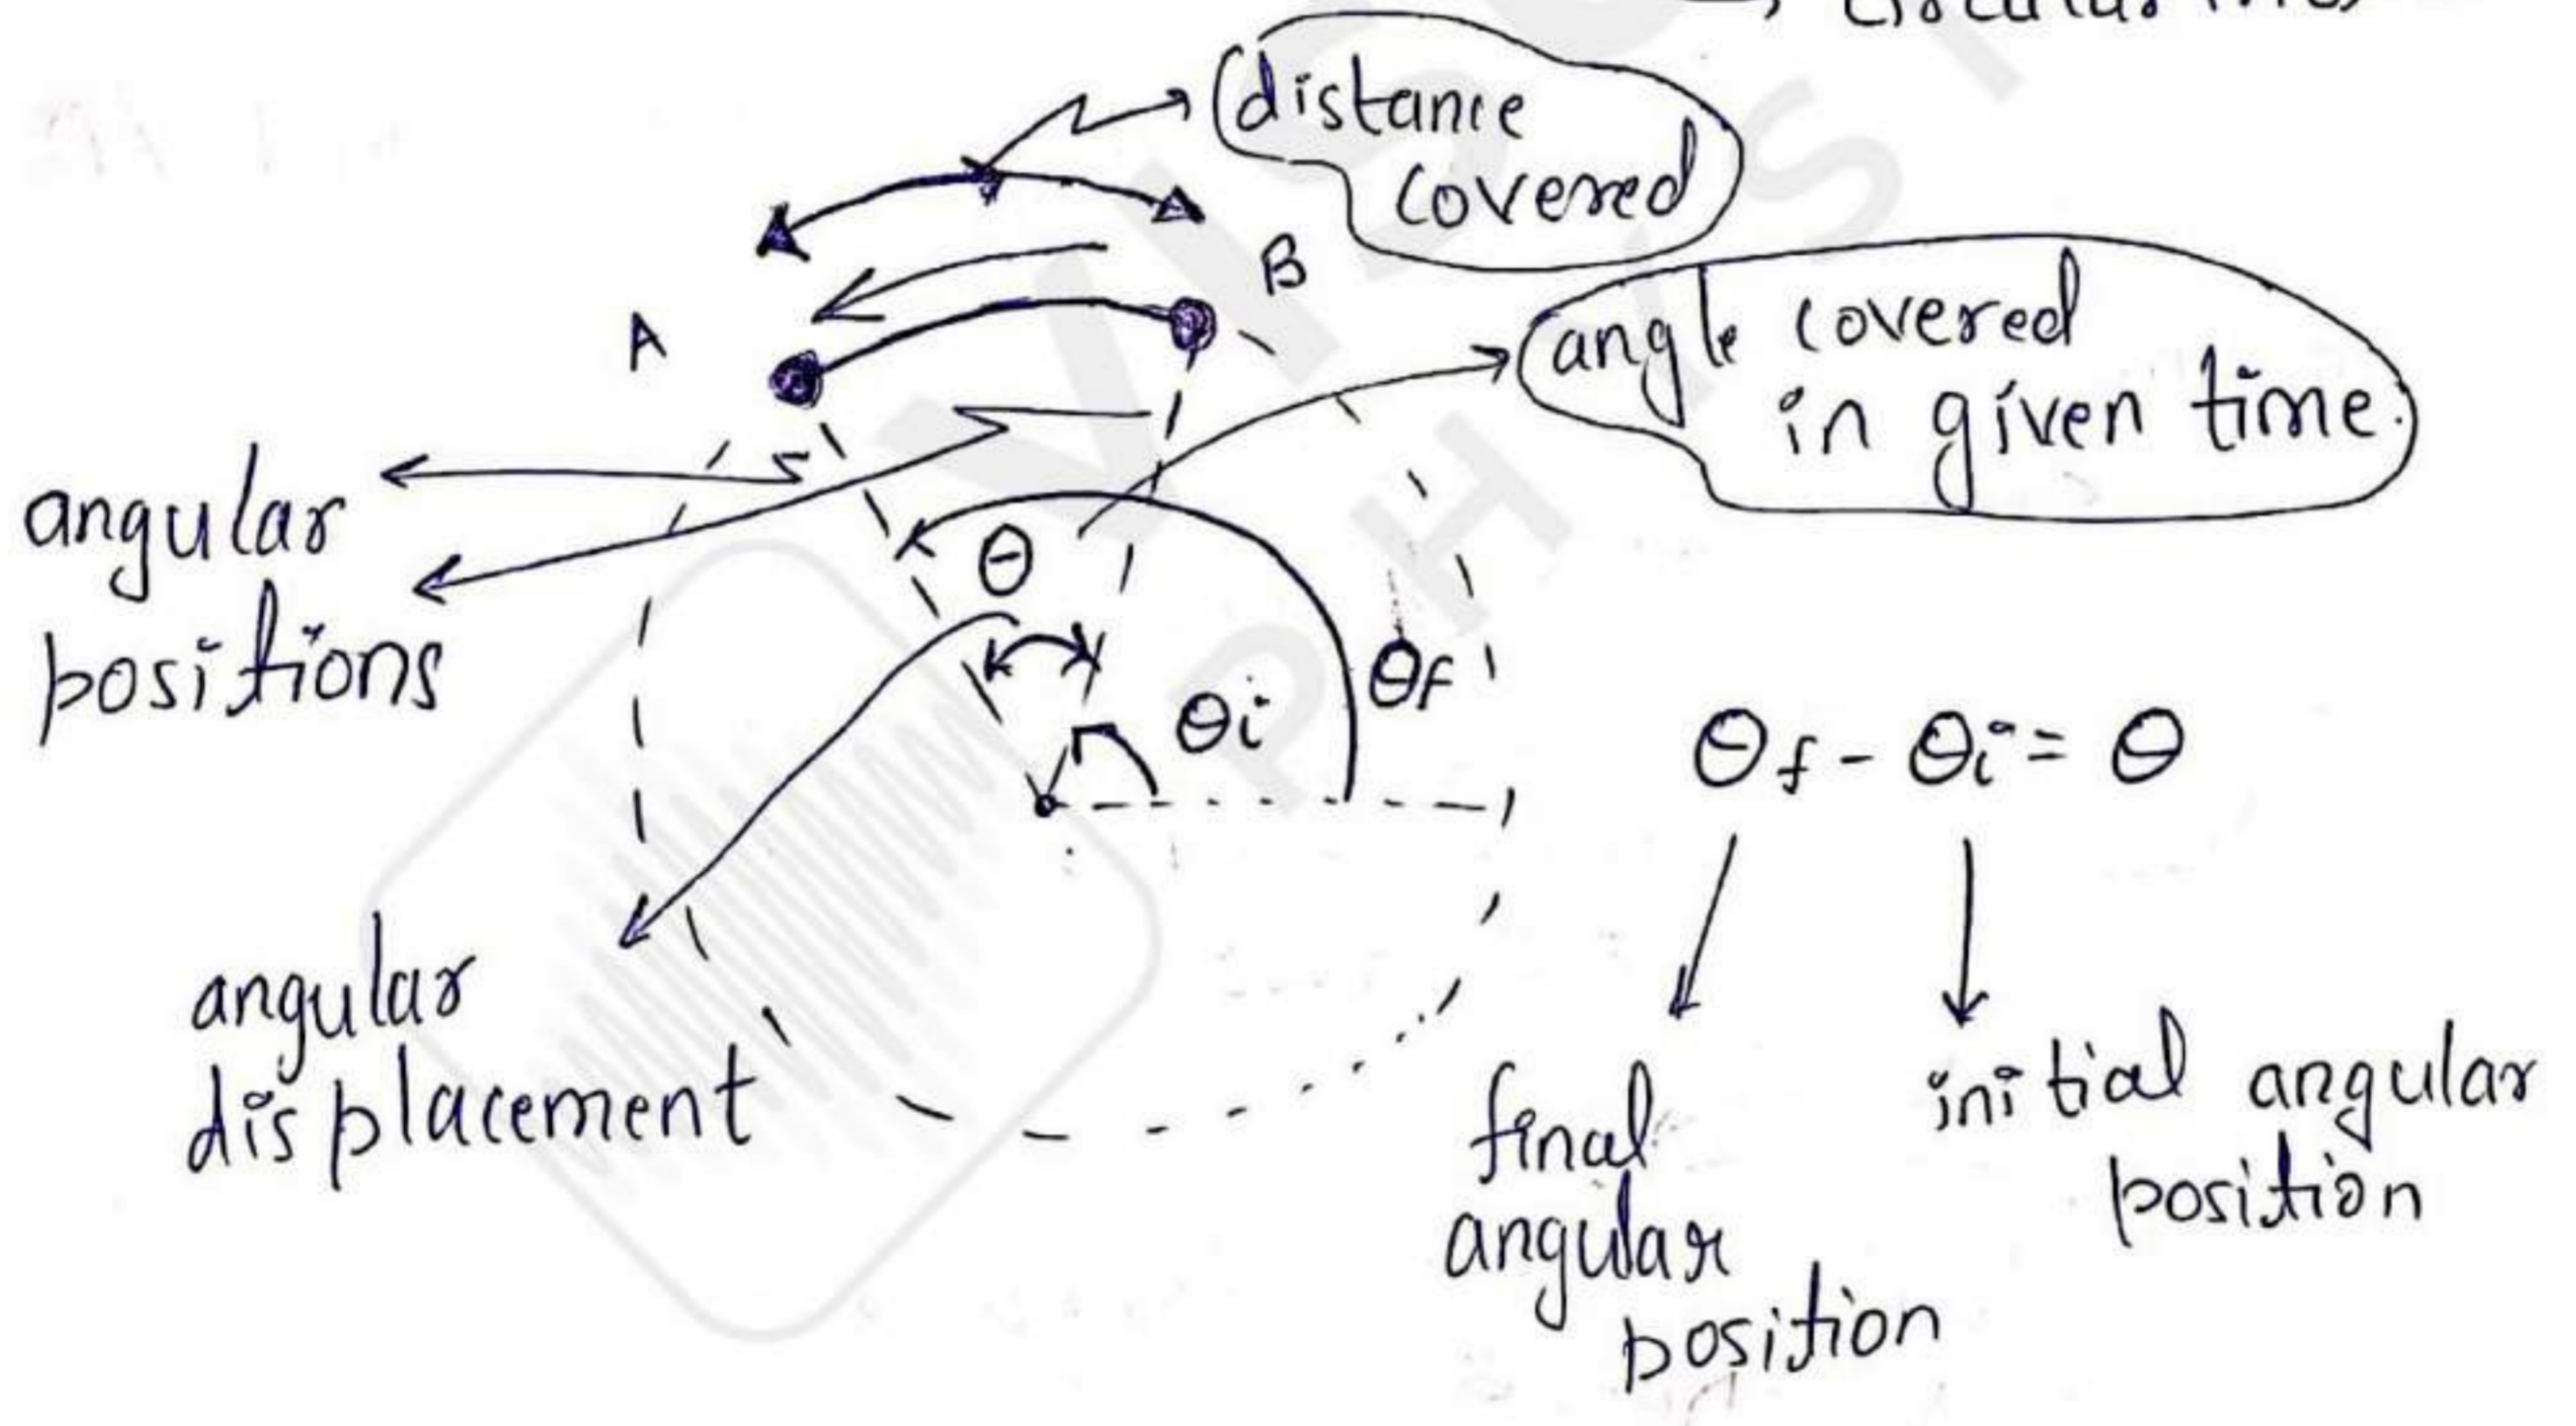 distance
covered
B
A
angle covered
in given time.
angular
positions
θ
θf
θi
θf - θi = θ
angular
displacement
final
angular
position
initial angular
position